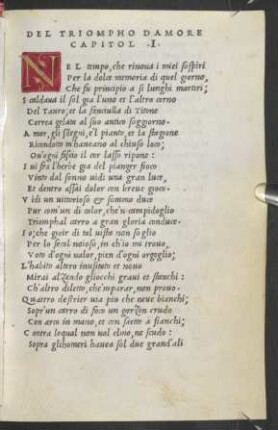 DEL TRIOMPHO D'AMORE
CAPITOL .I.
NEL tempo, che rinoua i miei sospiri
Per la dolce memoria di quel giorno,
Che fu principio a si lunghi martiri;
Scaldaua il sol gia l'uno et l'altro corno
Del Tauro; et la fanciulla di Titone
Correa gelata al suo antico soggiorno.
Amor, gli sdegni, e'l pianto, et la stagione
Ricondotto m'haueano al chiuso loco;
Ou'ogni fascio il cor lasso ripone:
Iui fra l'herbe gia del pianger fioco
Vinto dal sonno uidi una gran luce,
Et dentro assai dolor con breue gioco.
Vidi un uittorioso et sommo duce
Pur com'un di color, che'n campidoglio
Triumphal carro a gran gloria conduce.
Io; che gioir di tal uista non soglio
Per lo secol noioso, in ch'io mi trouo,
Voto d'ogni ualor, pien d'ogni orgoglio;
L'habito altero inusitato et nouo
Mirai alzando gliocchi graui et stanchi:
Ch'altro diletto, che'mparar, non prouo.
Quattro destrier uia piu che neue bianchi;
Sopr'un carro di foco un garzon crudo
Con arco in mano, et con saette a fianchi;
Contra lequal non ual elmo, ne scudo:
Sopra glihomeri hauea sol due grand'ali